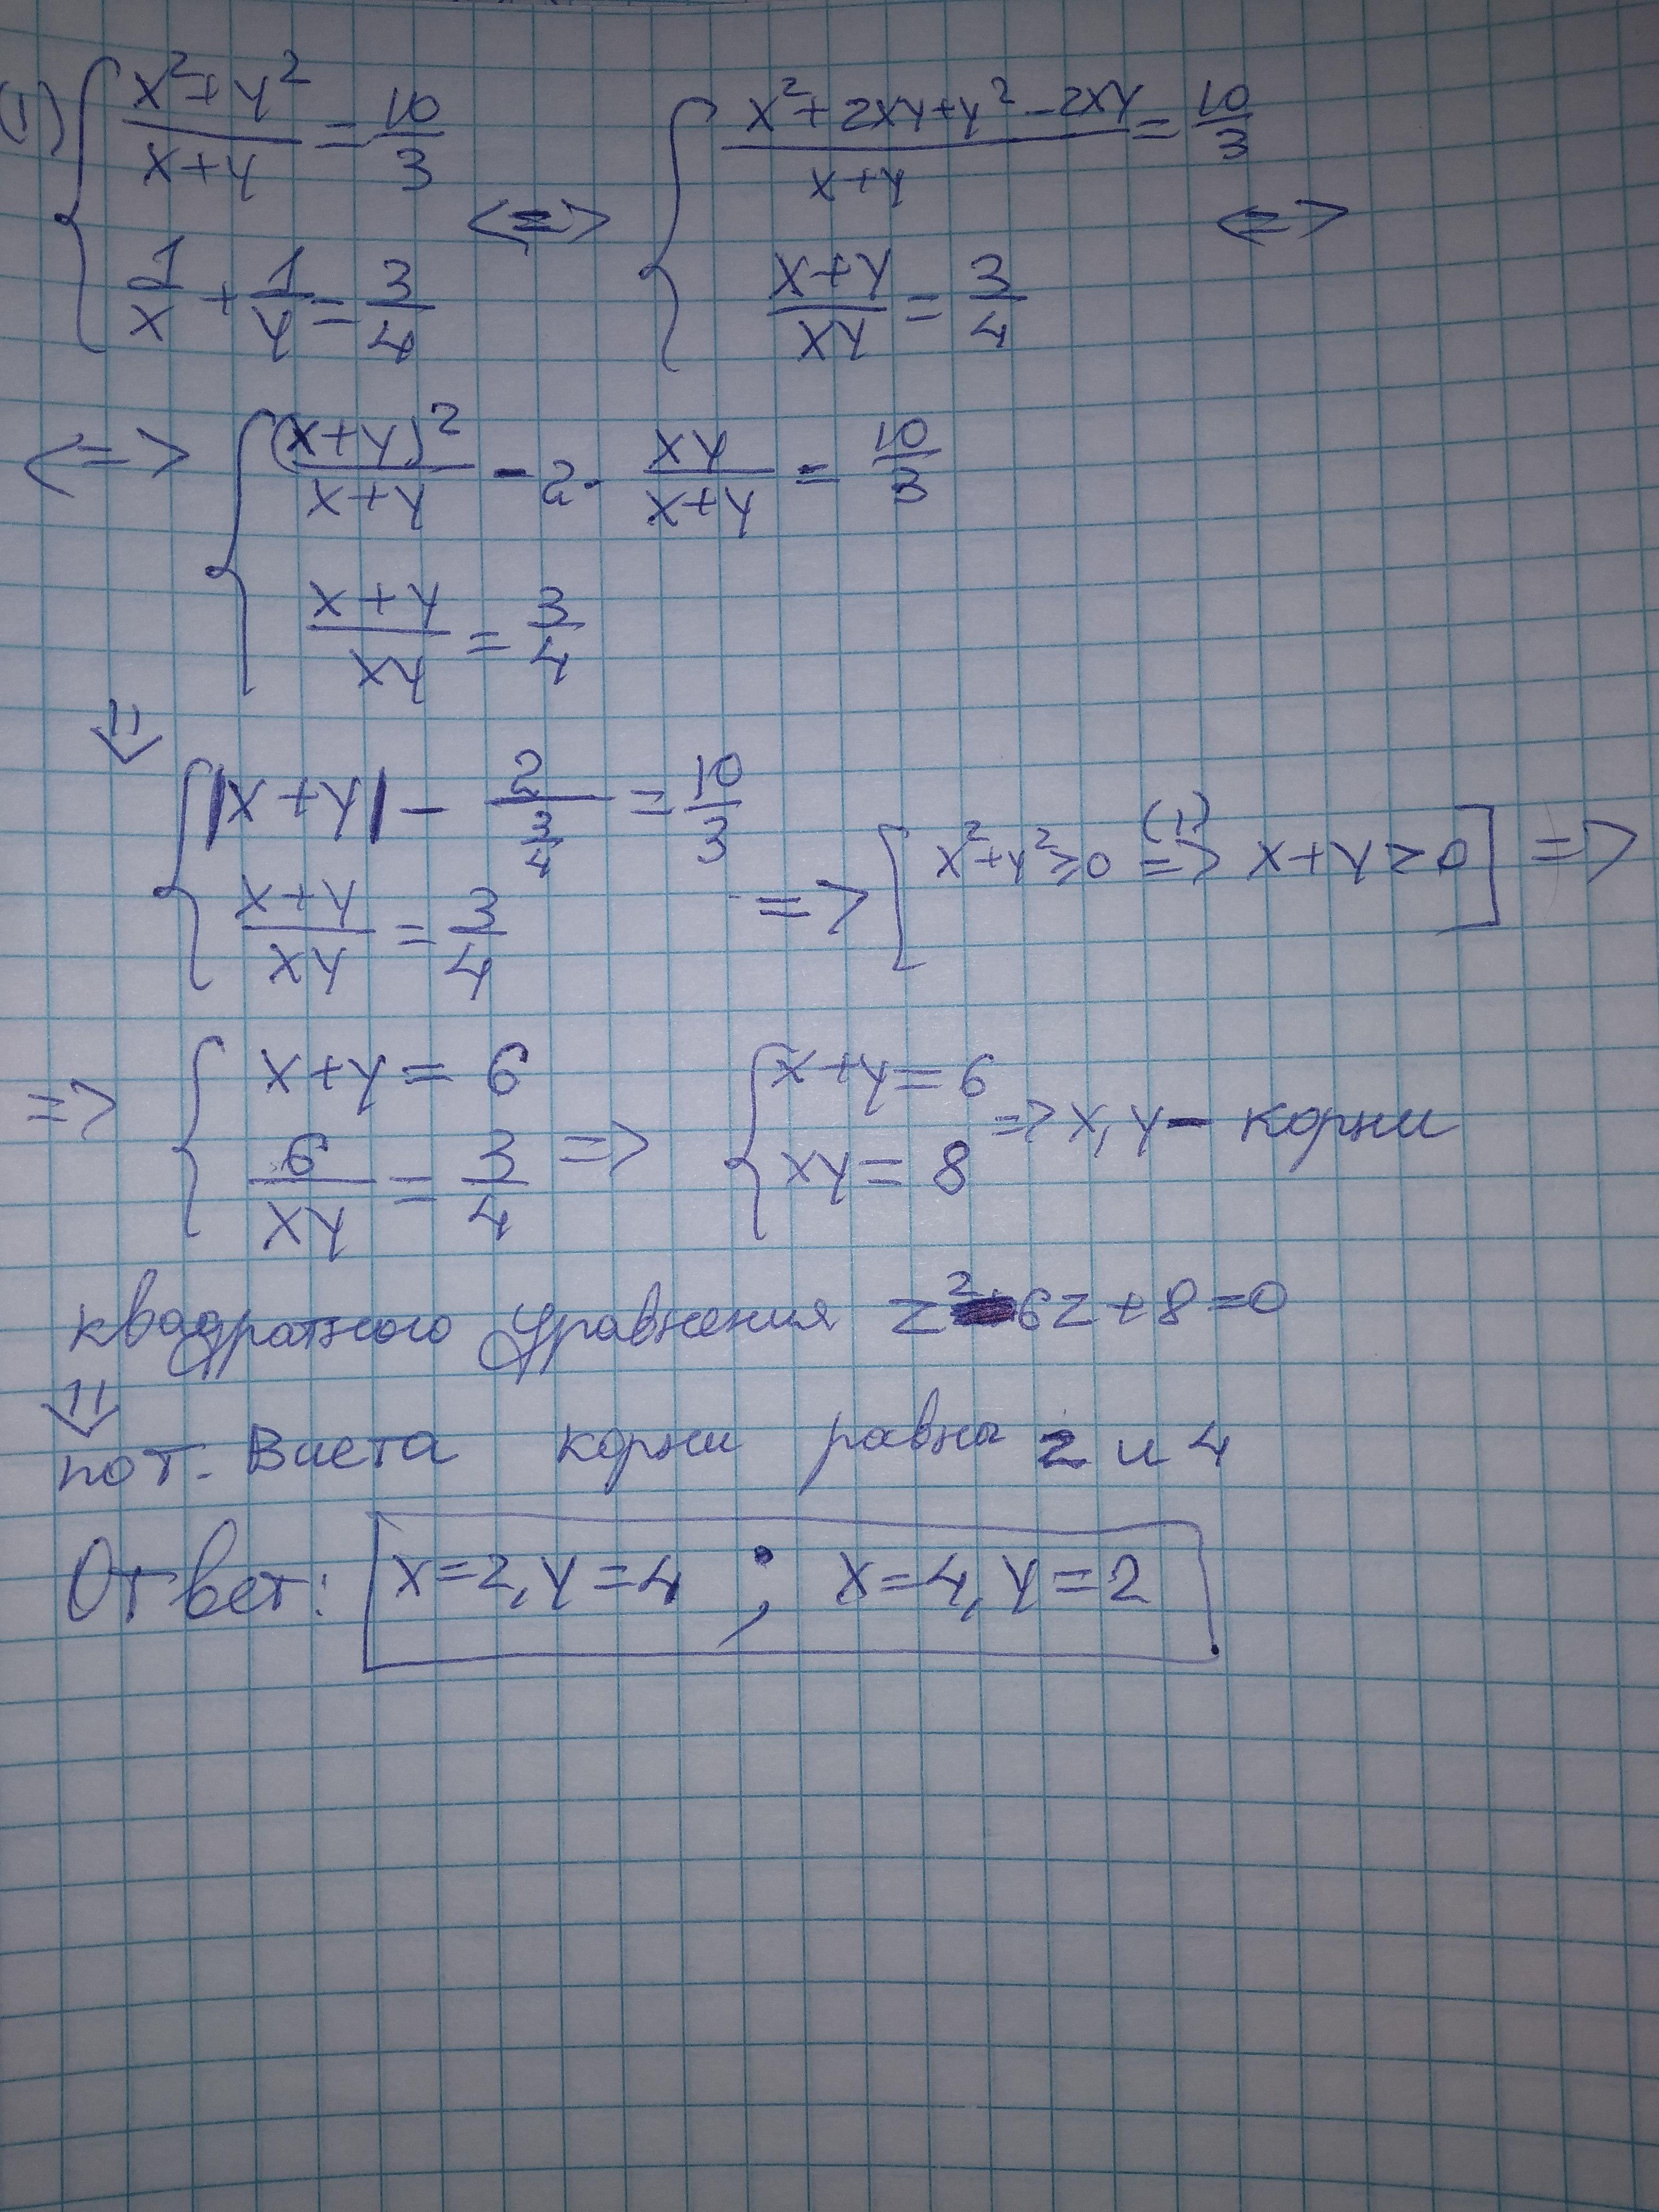 (1) { (x²+y²)/(x+y) = 10/3 ; 1/x + 1/y = 3/4 <=> { (x²+2xy+y²-2xy)/(x+y) = 10/3 ; (x+y)/(xy) = 3/4 <=>
<=> { (x+y)²/(x+y) - 2· xy/(x+y) = 10/3 ; (x+y)/(xy) = 3/4
⇓ { |x+y| - 2/(3/4) = 10/3 ; (x+y)/(xy) = 3/4 => [ x²+y²≥0 (1)=> x+y≥0 ] =>
=> { x+y = 6 ; 6/(xy) = 3/4 => { x+y=6 ; xy=8 => x,y - корни
квадратного уравнения z²-6z+8=0
⇓
по т. Виета корни равны 2 и 4
Ответ: x=2, y=4 ; x=4, y=2.